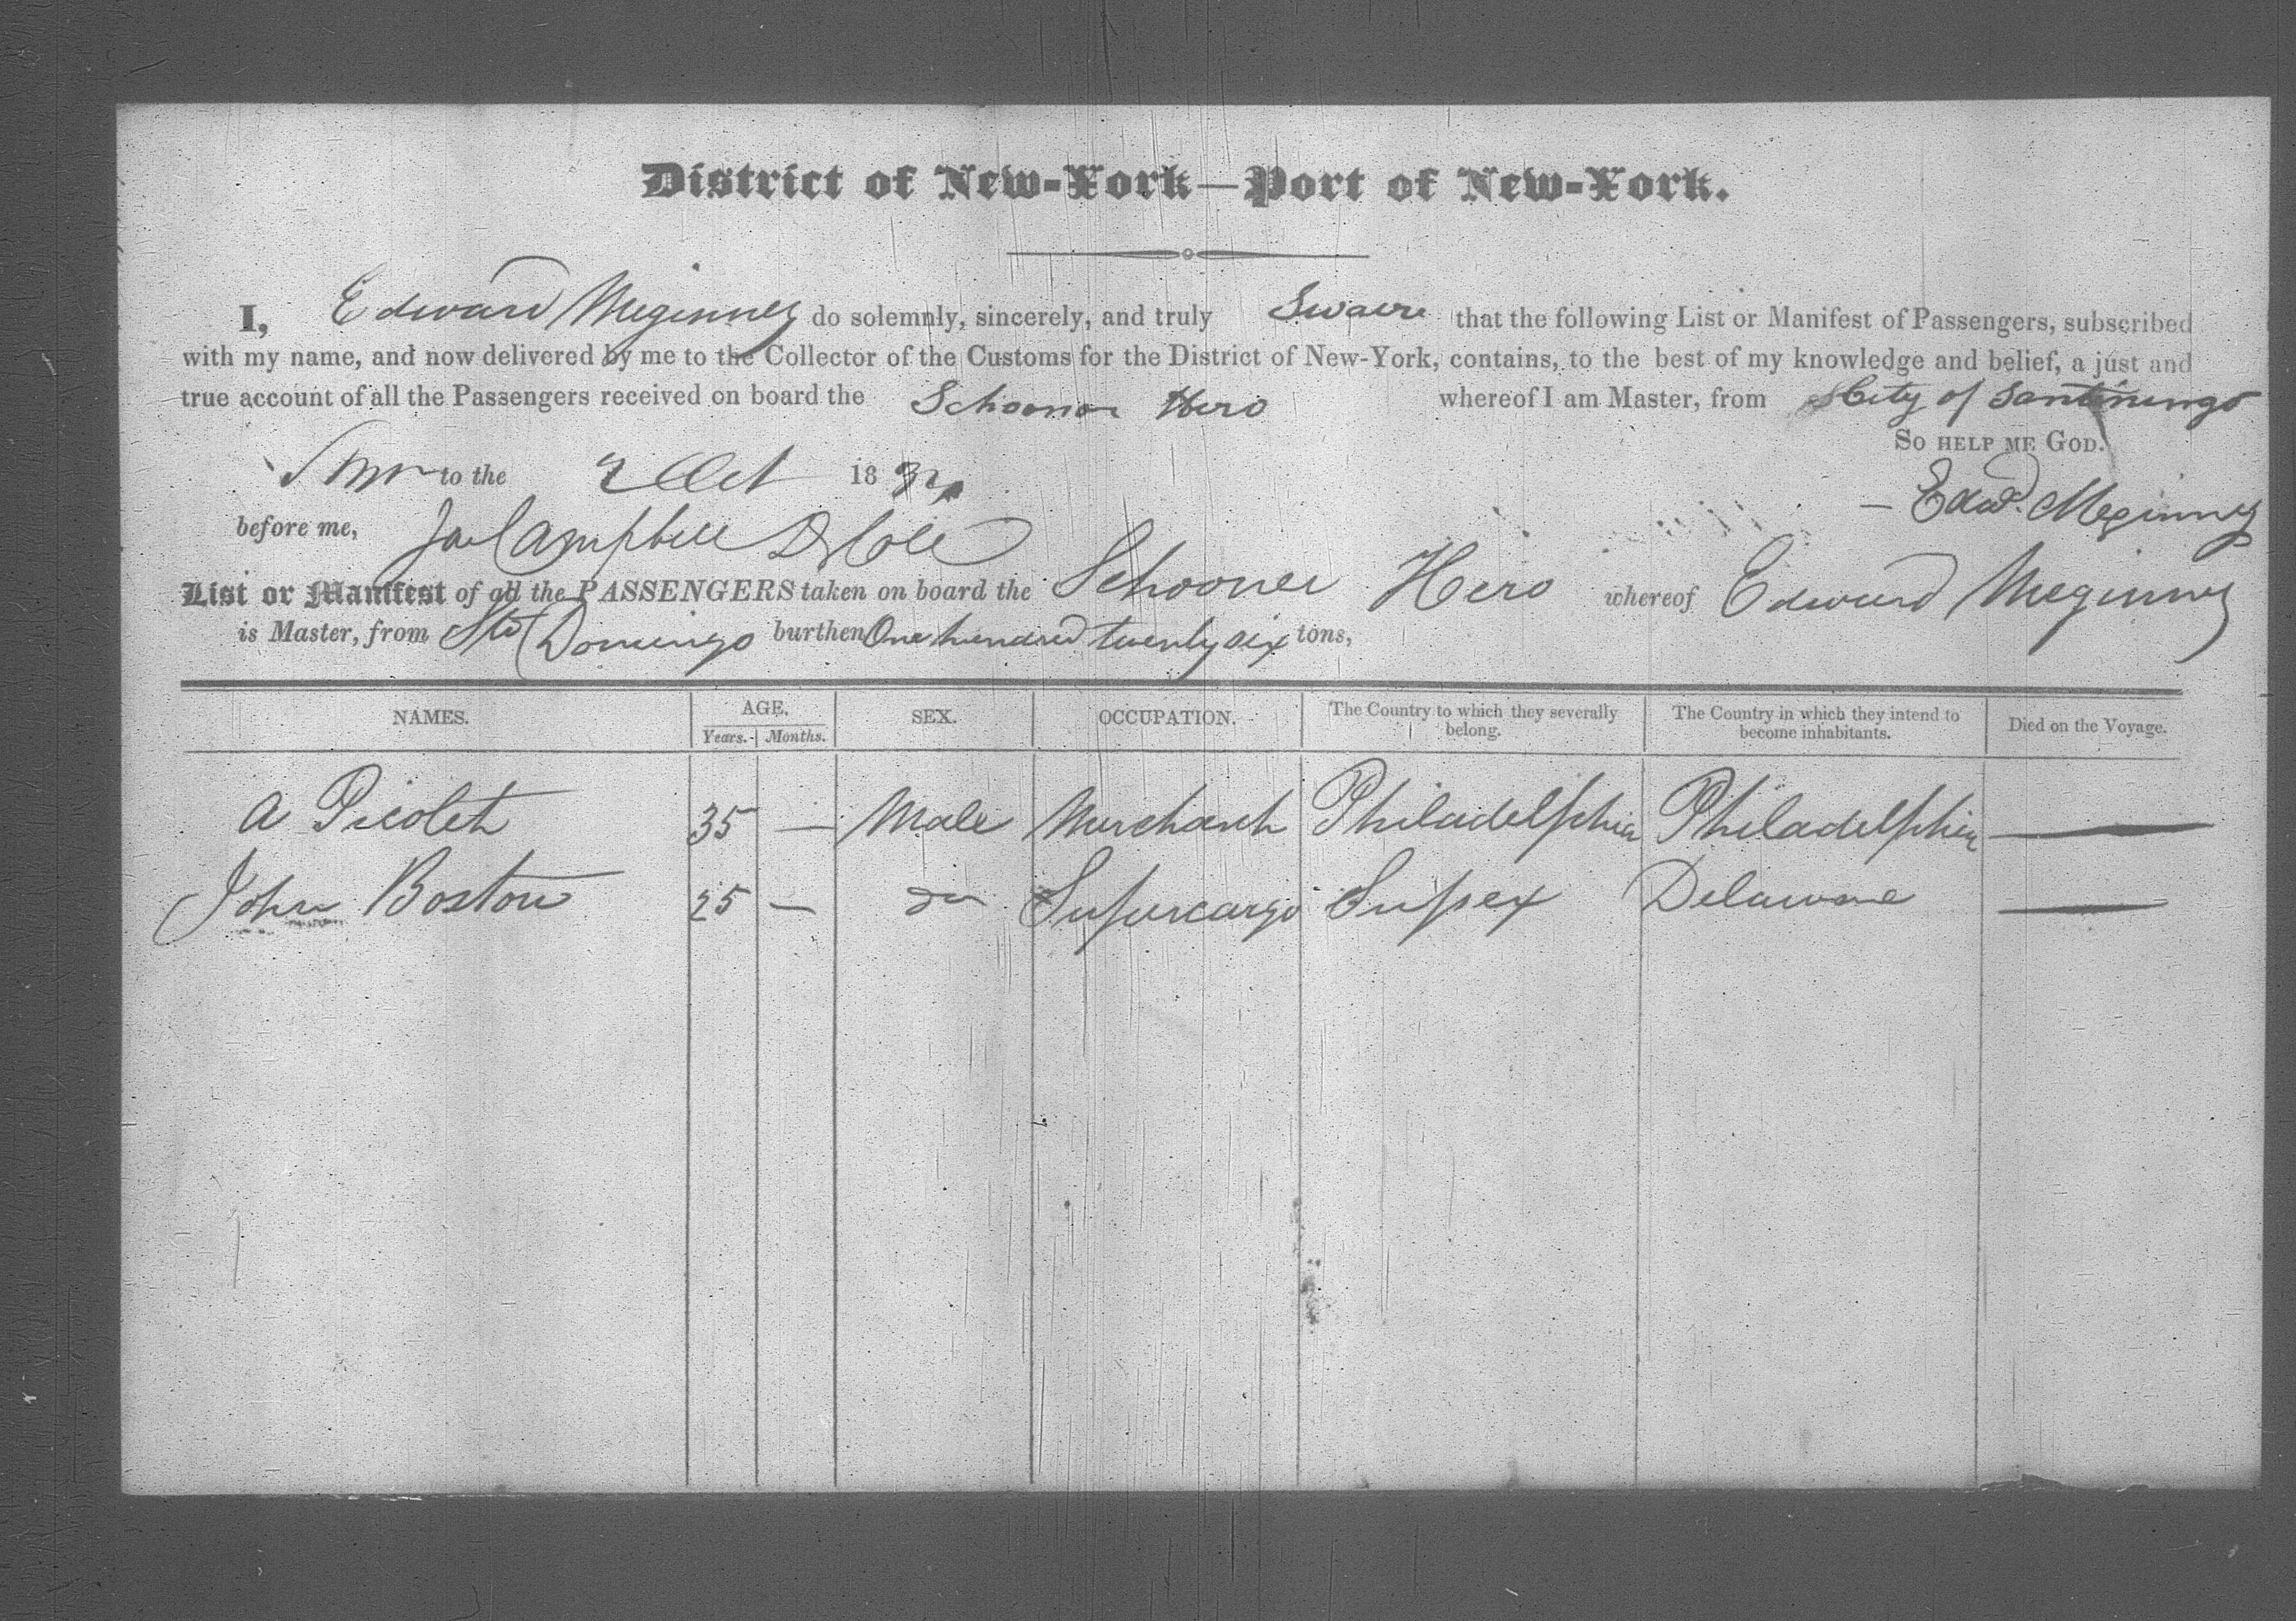 District of New-York—Port of New-York.
I, Edward Meginney do solemnly, sincerely, and truly Swaere that the following List or Manifest of Passengers, subscribed
with my name, and now delivered by me to the Collector of the Customs for the District of New-York, contains, to the best of my knowledge and belief, a just and
true account of all the Passengers received on board the Schooner Hero whereof I am Master, from City of Santimingo
So HELP ME GOD.
to the 2 Oct 183
Edwd. Meginney
before me, Campbell D Col
List or Manifest of all the PASSENGERS taken on board the Schooner Hero whereof Edward Meginney
is Master, from Sto Domingo burthen One hundred twenty six tons,
NAMES. AGE. SEX. OCCUPATION. The Country to which they severally belong. The Country in which they intend to become inhabitants. Died on the Voyage.
Years. Months.
A Picolet 35 — Male Merchant Philadelphia Philadelphia —
John Boston 25 — do Supercargo Sussex Delaware —